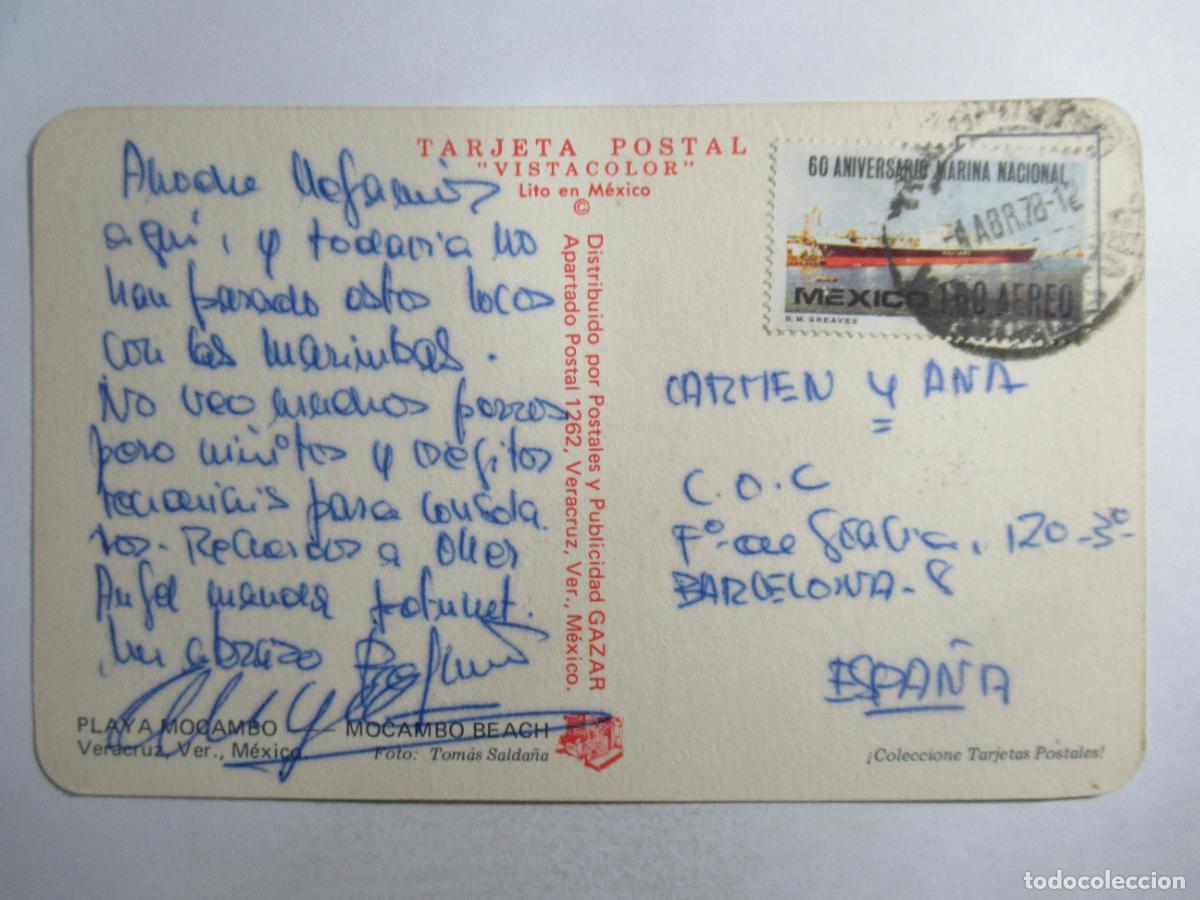 TARJETA POSTAL
"VISTACOLOR"
Lito en México
©
Distribuido por Postales y Publicidad GAZAR
Apartado Postal 1262, Veracruz, Ver., México.
Anoche llegamos
aquí, y todavía no
han pasado estos locos
con las marimbas.
No veo muchos perros
pero
y
para consola
ros. Recuerdos a
Angel manda
Un abrazo
PLAYA MOCAMBO — MOCAMBO BEACH
Veracruz, Ver., México.
Foto: Tomás Saldaña
60 ANIVERSARIO MARINA NACIONAL
MEXICO 1.60 AEREO
R.M. GREAVES
ABR.78-12
CARMEN y ANA
C.O.C
Pº de Gracia, 120-3º
BARCELONA-8
ESPAÑA
¡Coleccione Tarjetas Postales!
todocoleccion